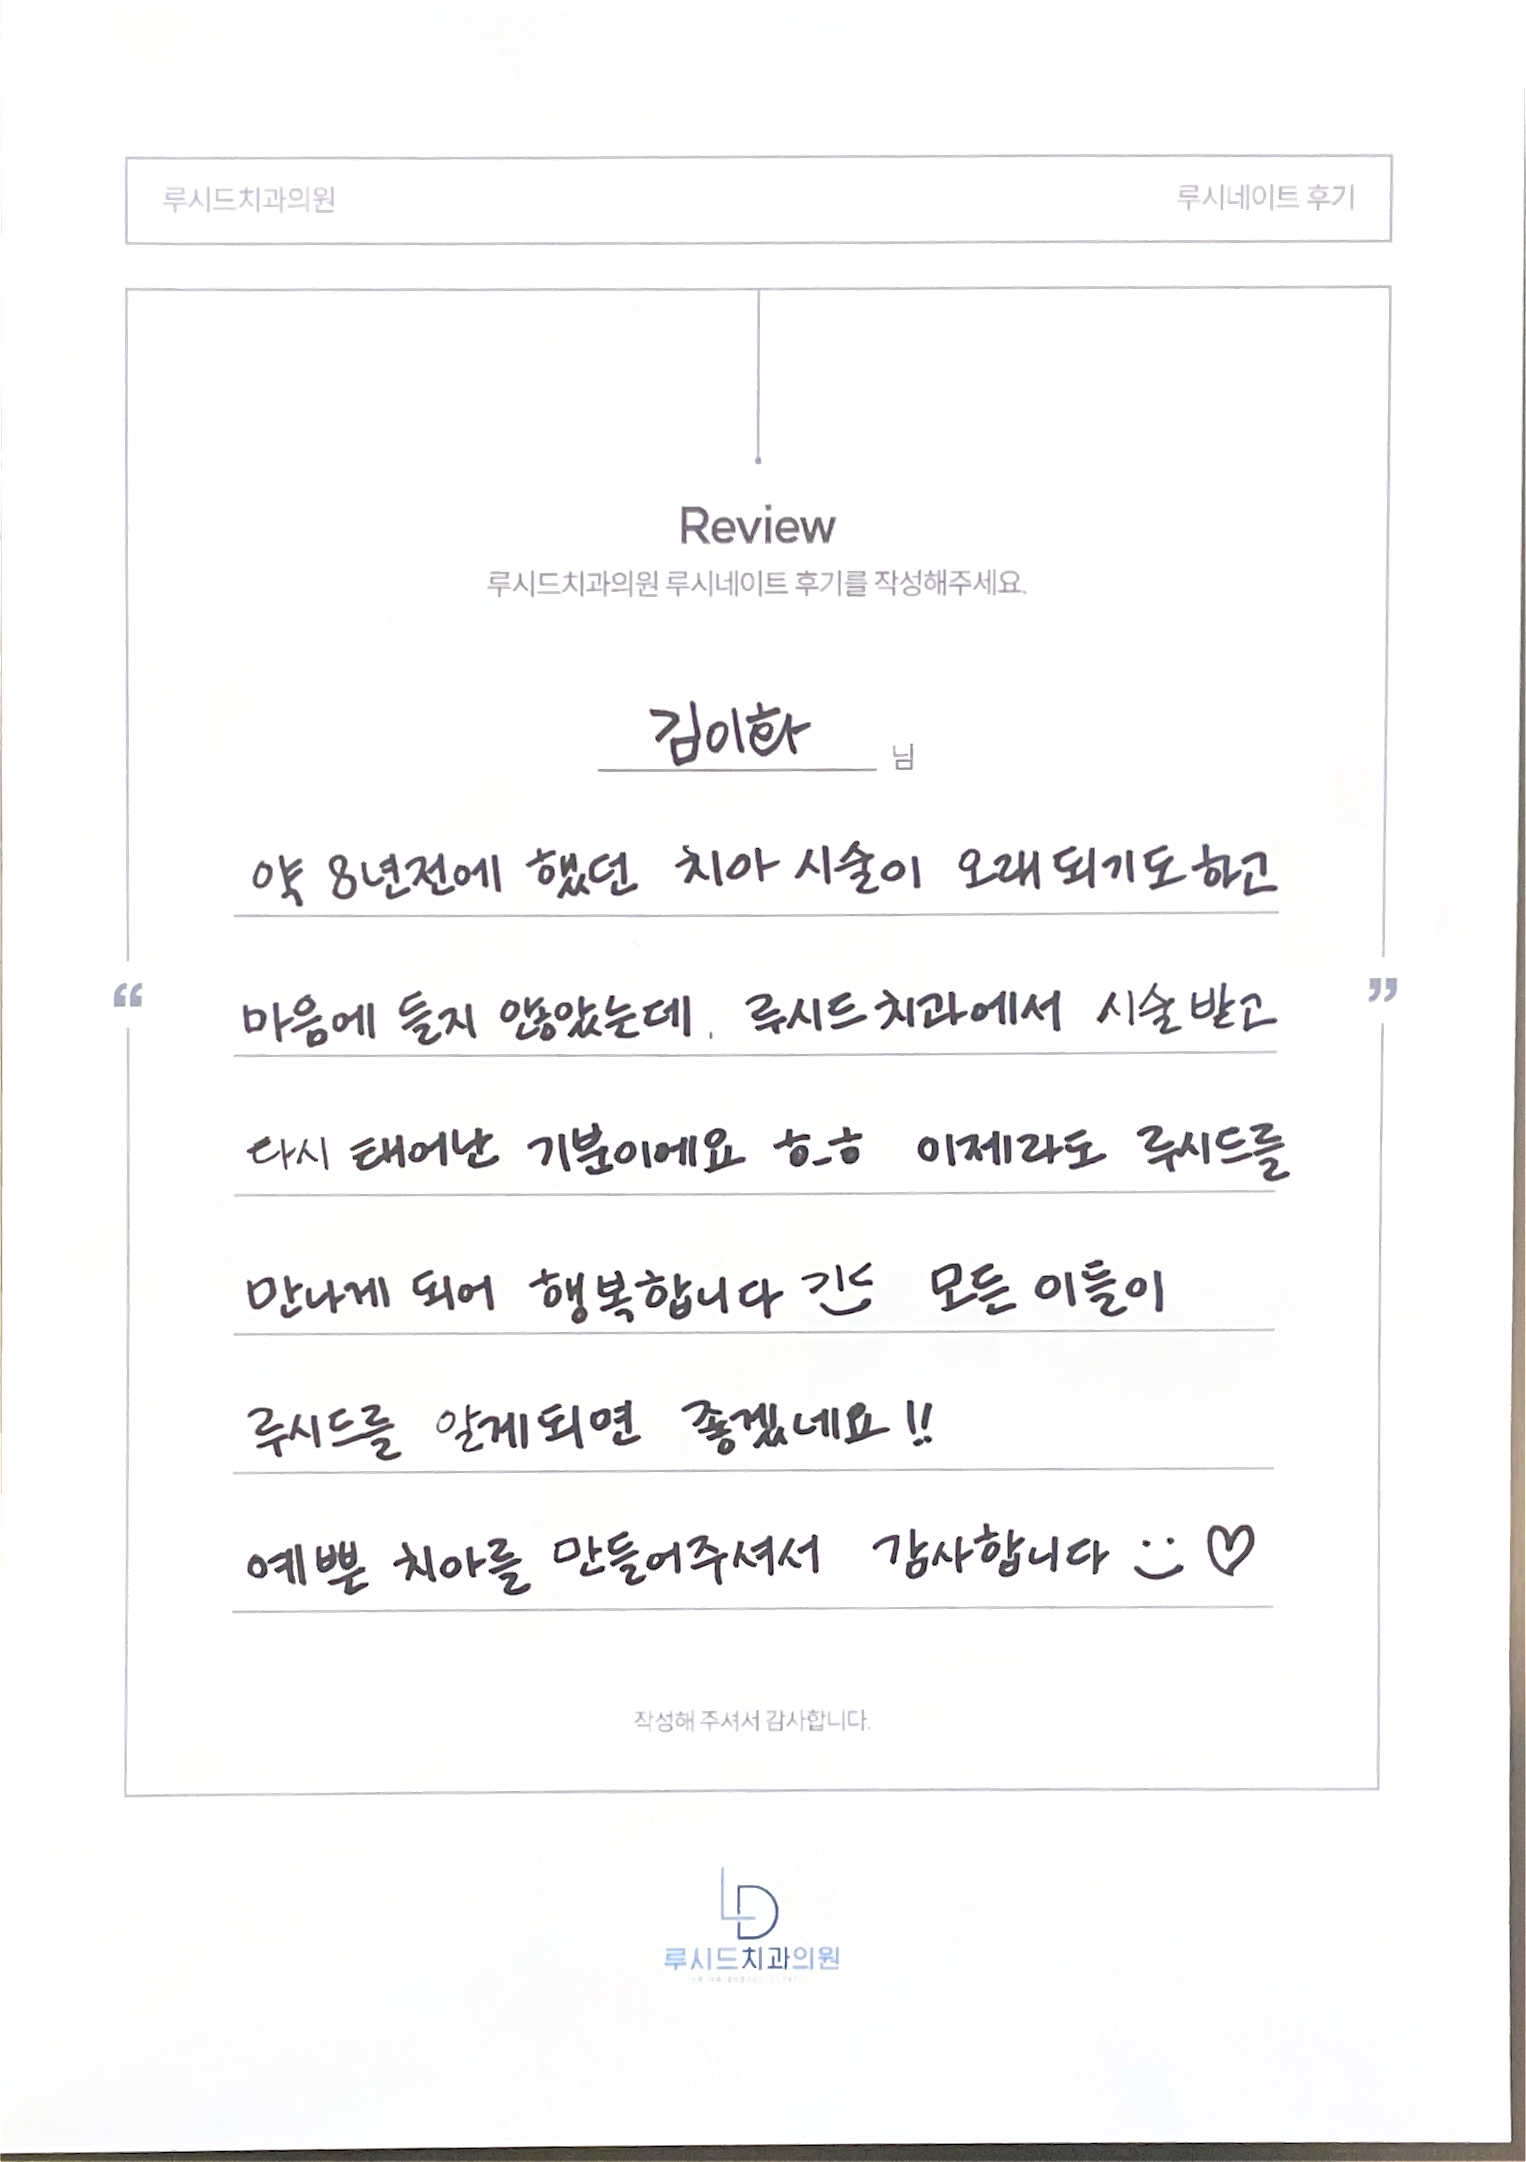 루시드치과의원
루시네이트 후기
Review
루시드치과의원 루시네이트 후기를 작성해주세요.
김이화 님
약 8년전에 했던 치아 시술이 오래되기도하고
“ 마음에 들지 않았는데, 루시드치과에서 시술받고 ”
다시 태어난 기분이에요 ㅎ_ㅎ 이제라도 루시드를
만나게 되어 행복합니다 모든 이들이
루시드를 알게되면 좋겠네요!!
예쁜 치아를 만들어주셔서 감사합니다 :) ♡
작성해 주셔서 감사합니다.
LD
루시드치과의원